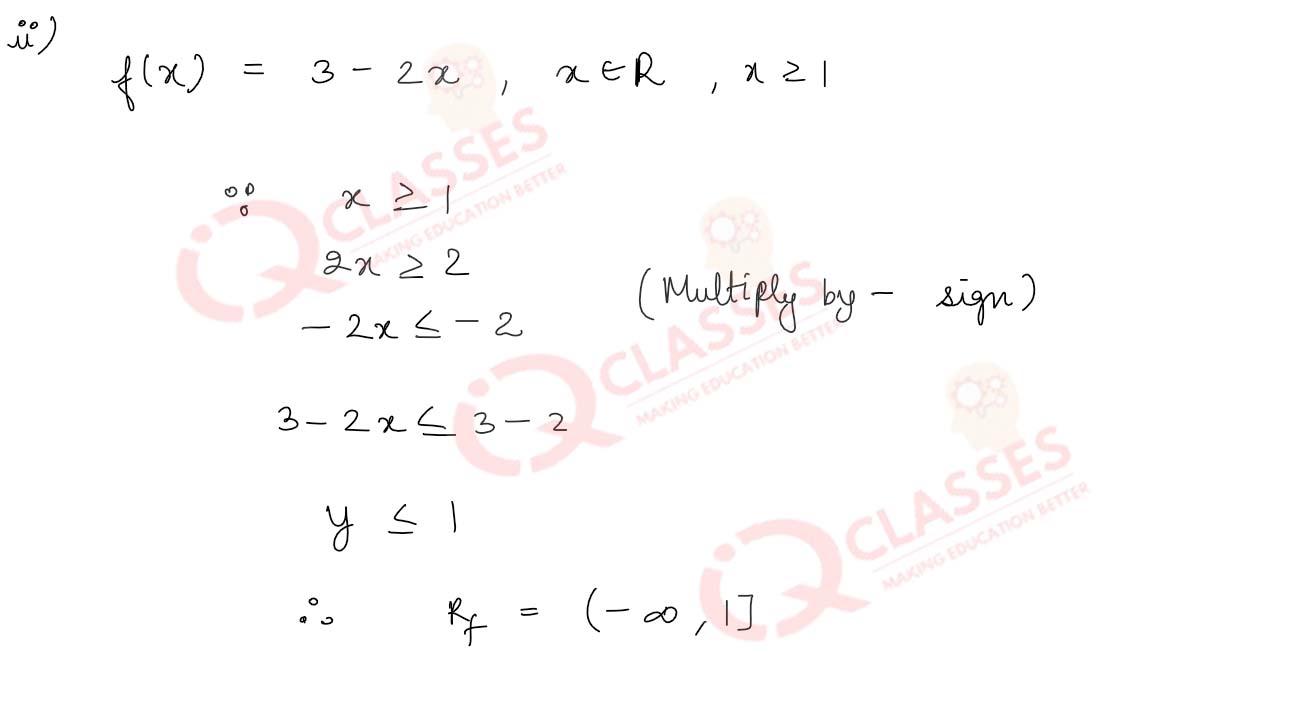 ii) f(x) = 3 - 2x , x ∈ R , x ≥ 1
∵ x ≥ 1
2x ≥ 2
(Multiply by - sign)
- 2x ≤ - 2
3 - 2x ≤ 3 - 2
y ≤ 1
∴ Rf = (-∞, 1]
iQ CLASSES
MAKING EDUCATION BETTER
iQ CLASSES
MAKING EDUCATION BETTER
iQ CLASSES
MAKING EDUCATION BETTER